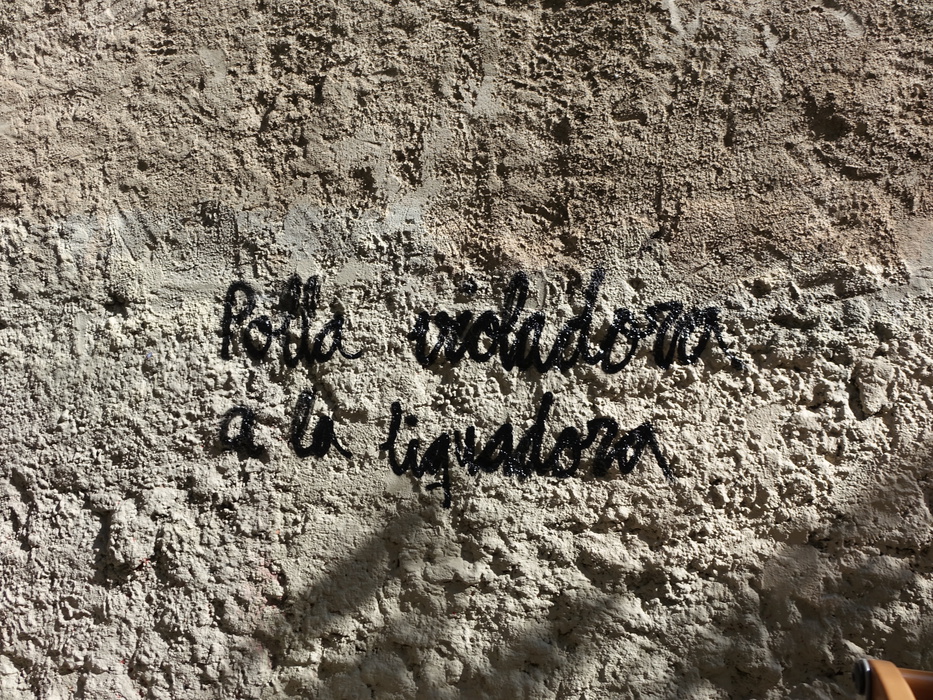 Polla violadora
a la liquadora